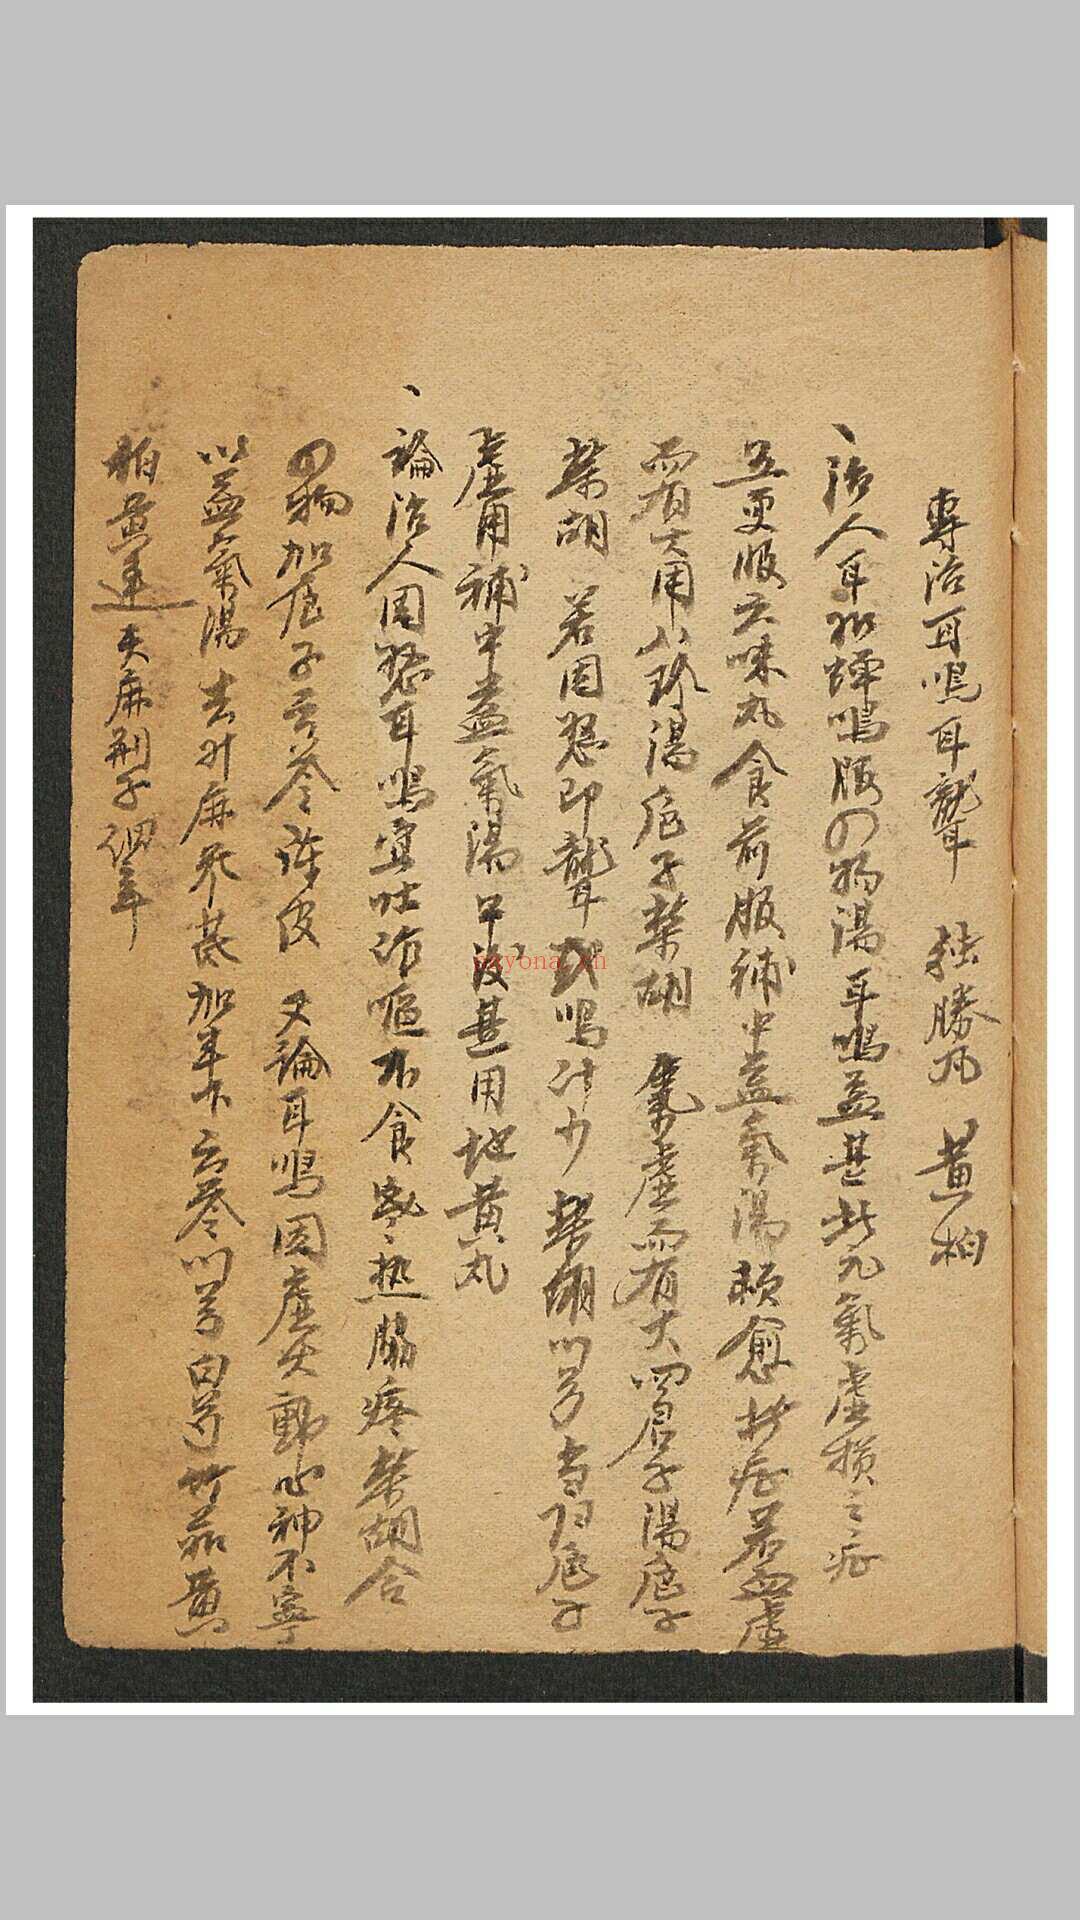 專治耳鳴耳聾 独勝丸 黃柏
治人耳如蟬鳴服四物湯耳鳴益甚此元氣虛損之症
五更服六味丸食前服補中益氣湯頓愈此症若血虛
而有火用八珍湯梔子柴胡 氣虛而有火四君子湯梔子
柴胡 若因怒即聾或鳴 柴胡川芎當归梔子
虛用補中益氣湯 甚用地黃丸
論治人因怒耳鳴宜吐 嘔不食寒热脇疼柴胡合
四物加梔子云苓陳皮 又論耳鳴因虛火動心神不寧
以益氣湯去升麻 芪加半下云苓川芎白芍竹茹黃
柏黃連 荆子